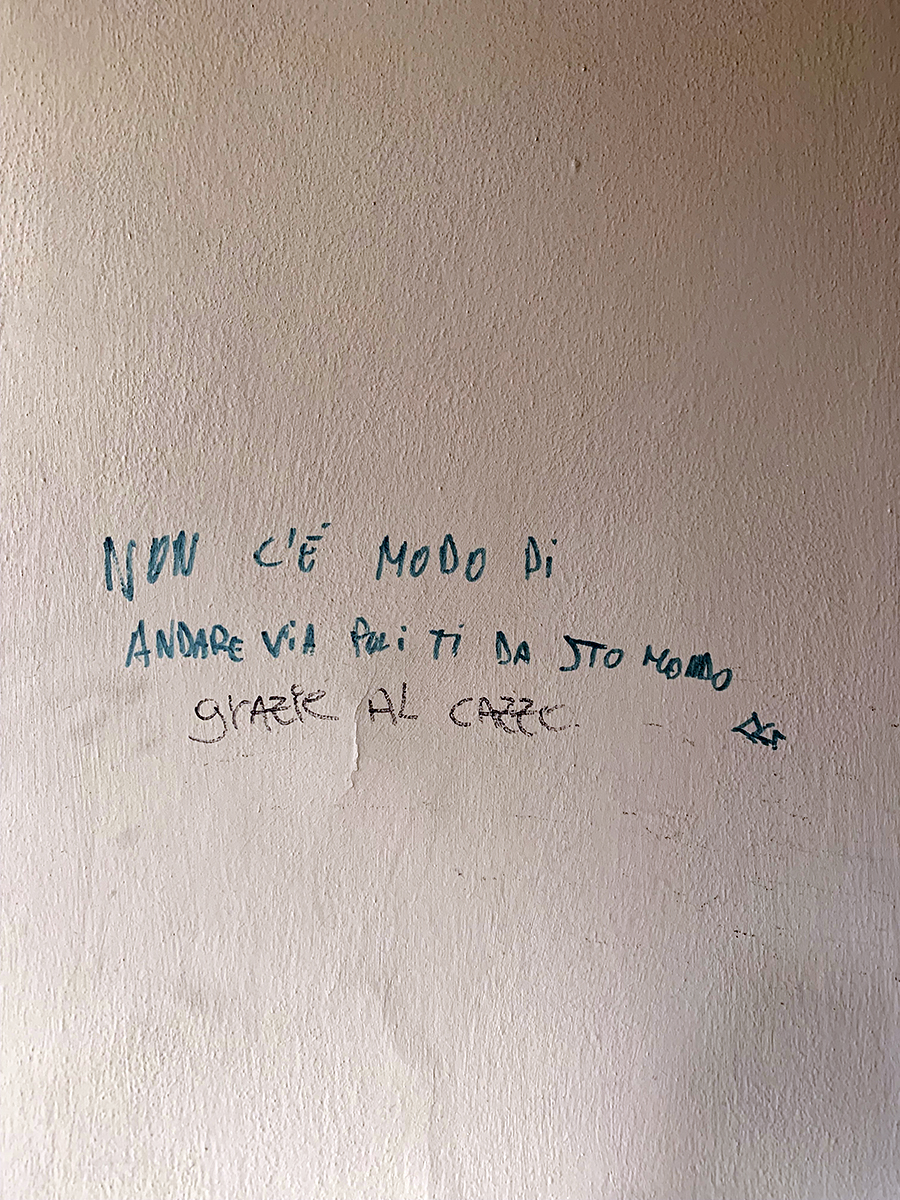 NON C'É MODO Di
ANDARE ViA PULiTi DA STO MONDO
grAZIE AL CAZZO